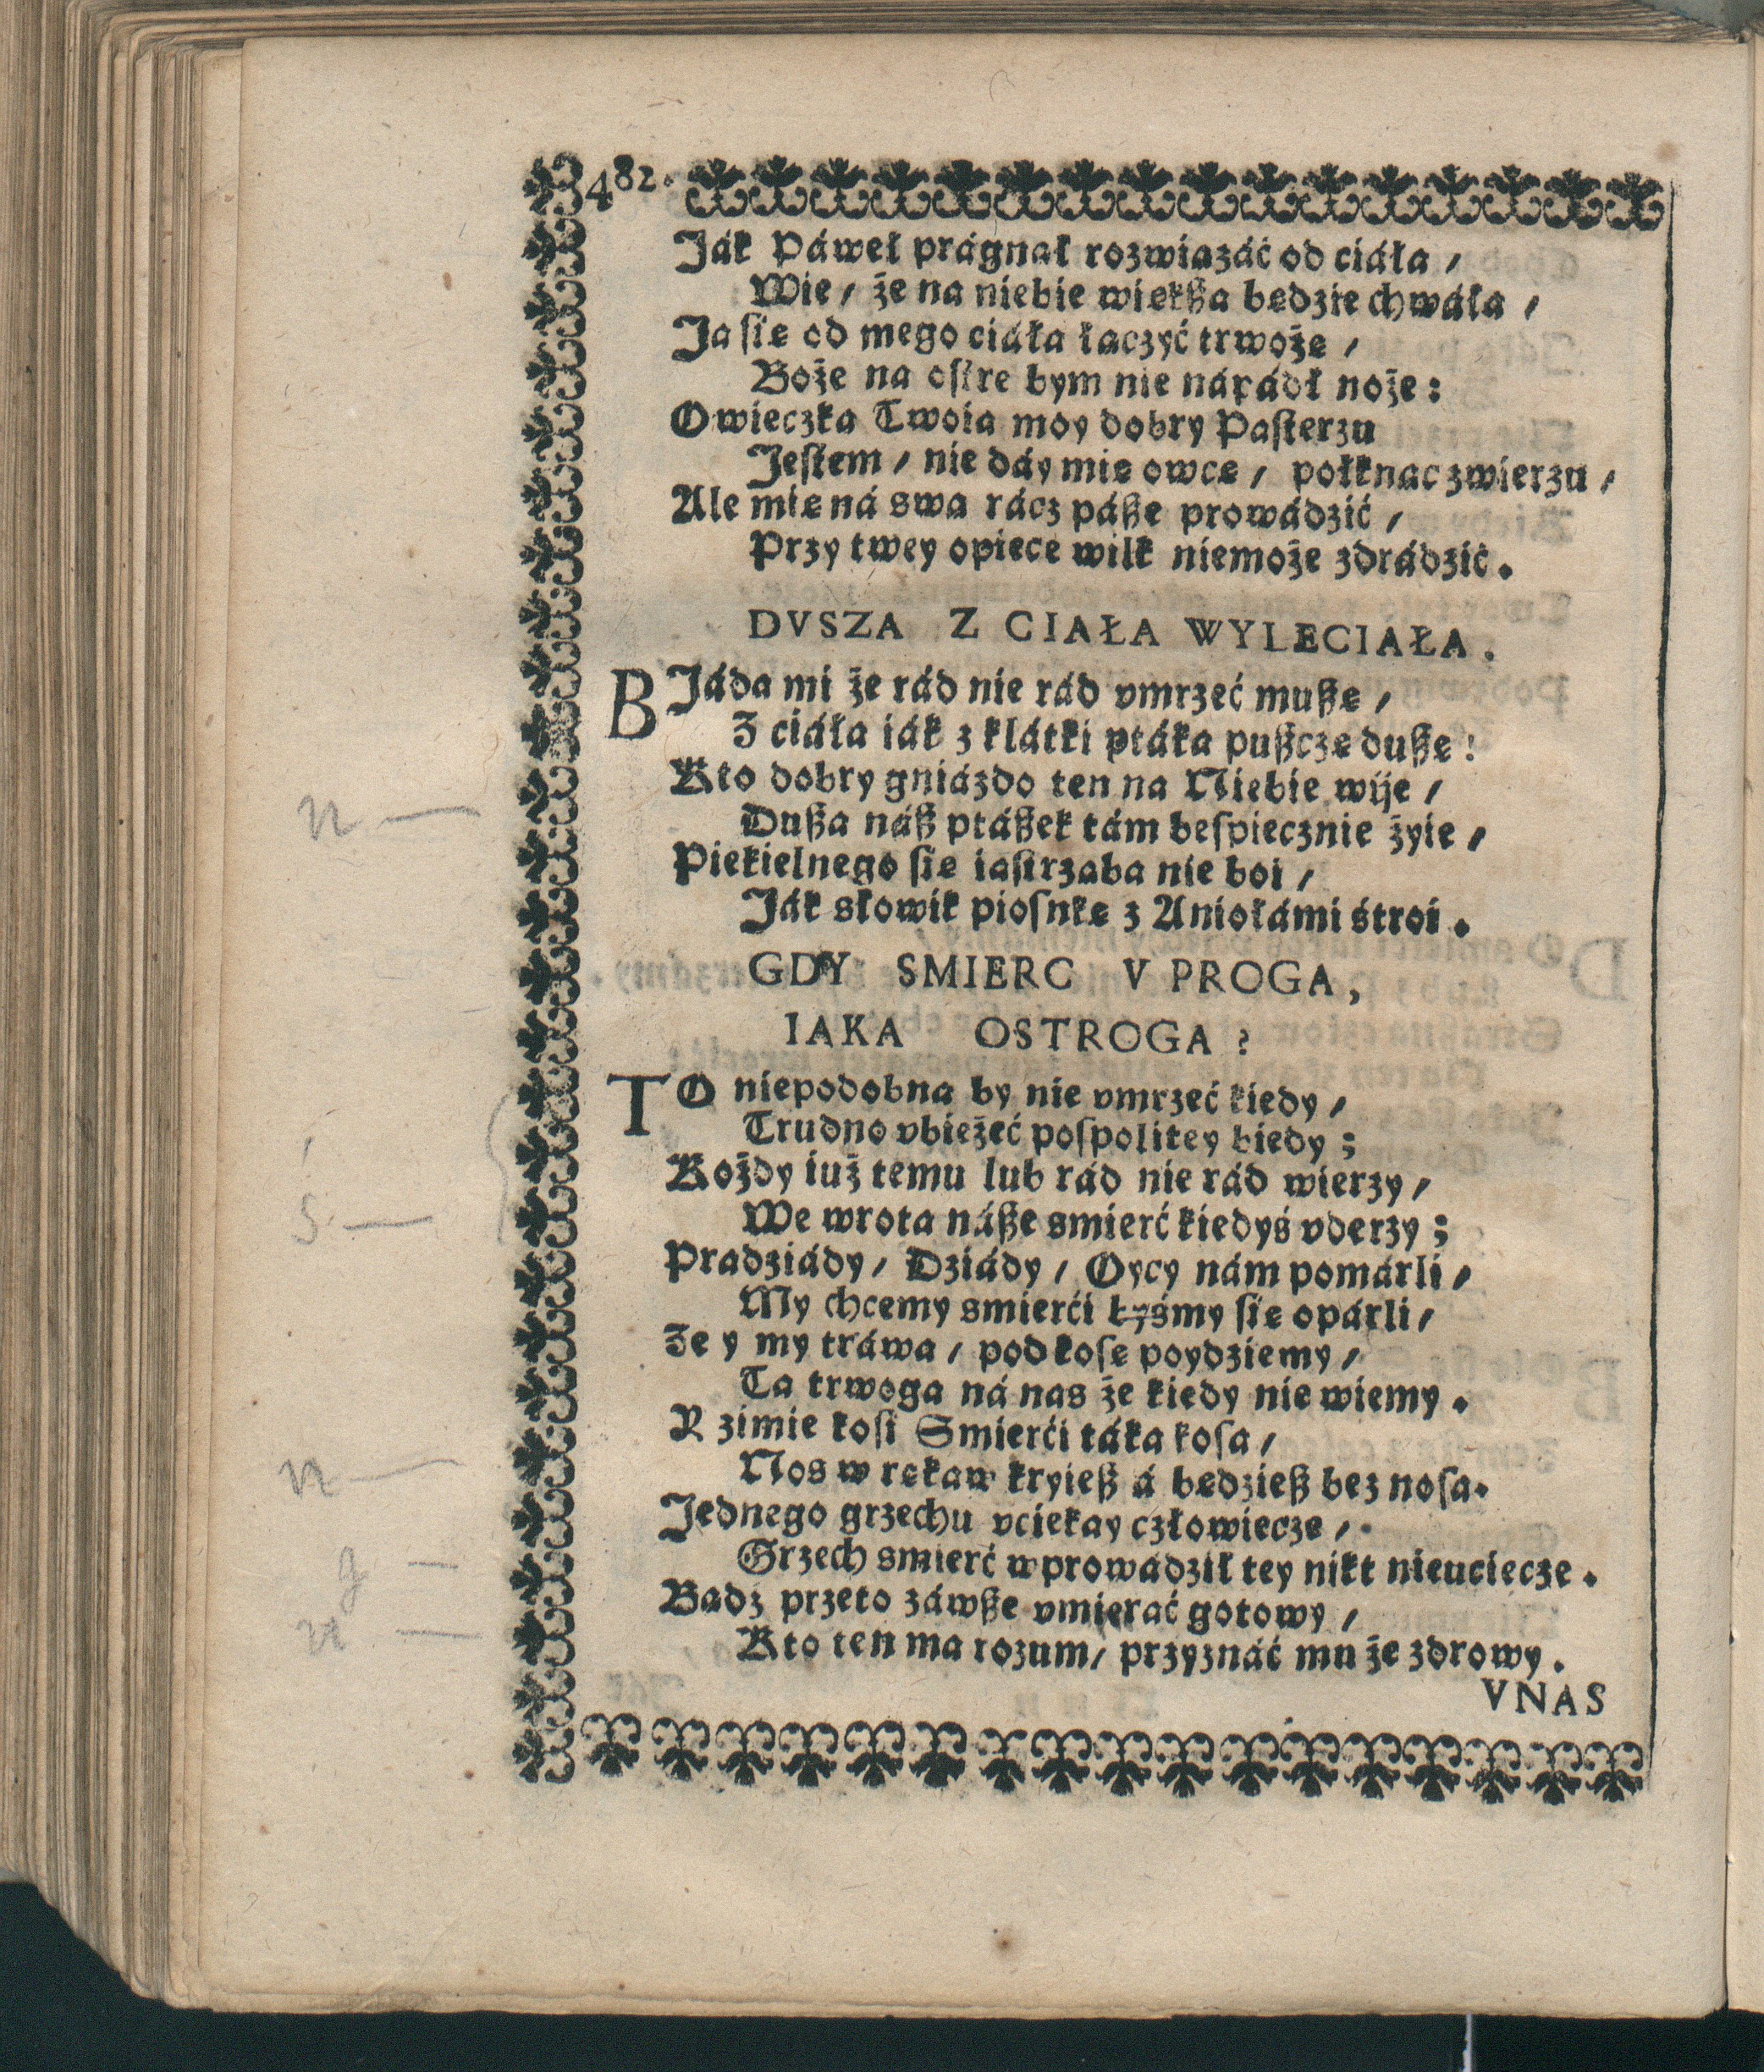 482.
Ják Páweł prágnął rozwiązáć od ciáłá /
Wie / że na niebie większa będzie chwáła /
Ja się od mego ciáła łączyć trwożę /
Boże na ostre bym nie nápádł noże:
Owieczka Twoia moy dobry Pasterzu
Jestem / nie dáy mię owcę / połknąć zwierzu /
Ale mię ná swą rácz pászę prowádzić /
Przy twey opiece wilk niemoże zdrádzić.
DVSZA Z CIAŁA WYLECIAŁA.
BJáda mi że rád nie rád vmrzeć muszę /
Z ciáła iák z klátki ptáka puszczę duszę!
Kto dobry gniázdo ten na Niebie wije /
Dusza nász ptászek tám bespiecznie żyie /
Piekielnego się iastrząba nie boi /
Ják słowik piosnkę z Aniołámi stroi.
GDY SMIERC V PROGA,
IAKA OSTROGA?
TO niepodobna by nie vmrzeć kiedy /
Trudno vbieżeć pospolitey biedy;
Kożdy iuż temu lub rád nie rád wierzy /
We wrota násze smierć kiedyś vderzy;
Pradziády / Dziády / Oycy nám pomárli /
My chcemy smierći byśmy się opárli /
Że y my tráwa / pod kosę poydziemy /
Ta trwoga ná nas że kiedy nie wiemy.
Y zimie kosi Smierći táka kosa /
Nos w rękaw kryiesz á będziesz bez nosa.
Jednego grzechu vciekay człowiecze /
Grzech smierć wprowadził tey nikt nieuciecze.
Bądź przeto záwsze vmierać gotowy /
Kto ten ma rozum / przyznáć mu że zdrowy.
VNAS
n —
s —
n —
g —
n —